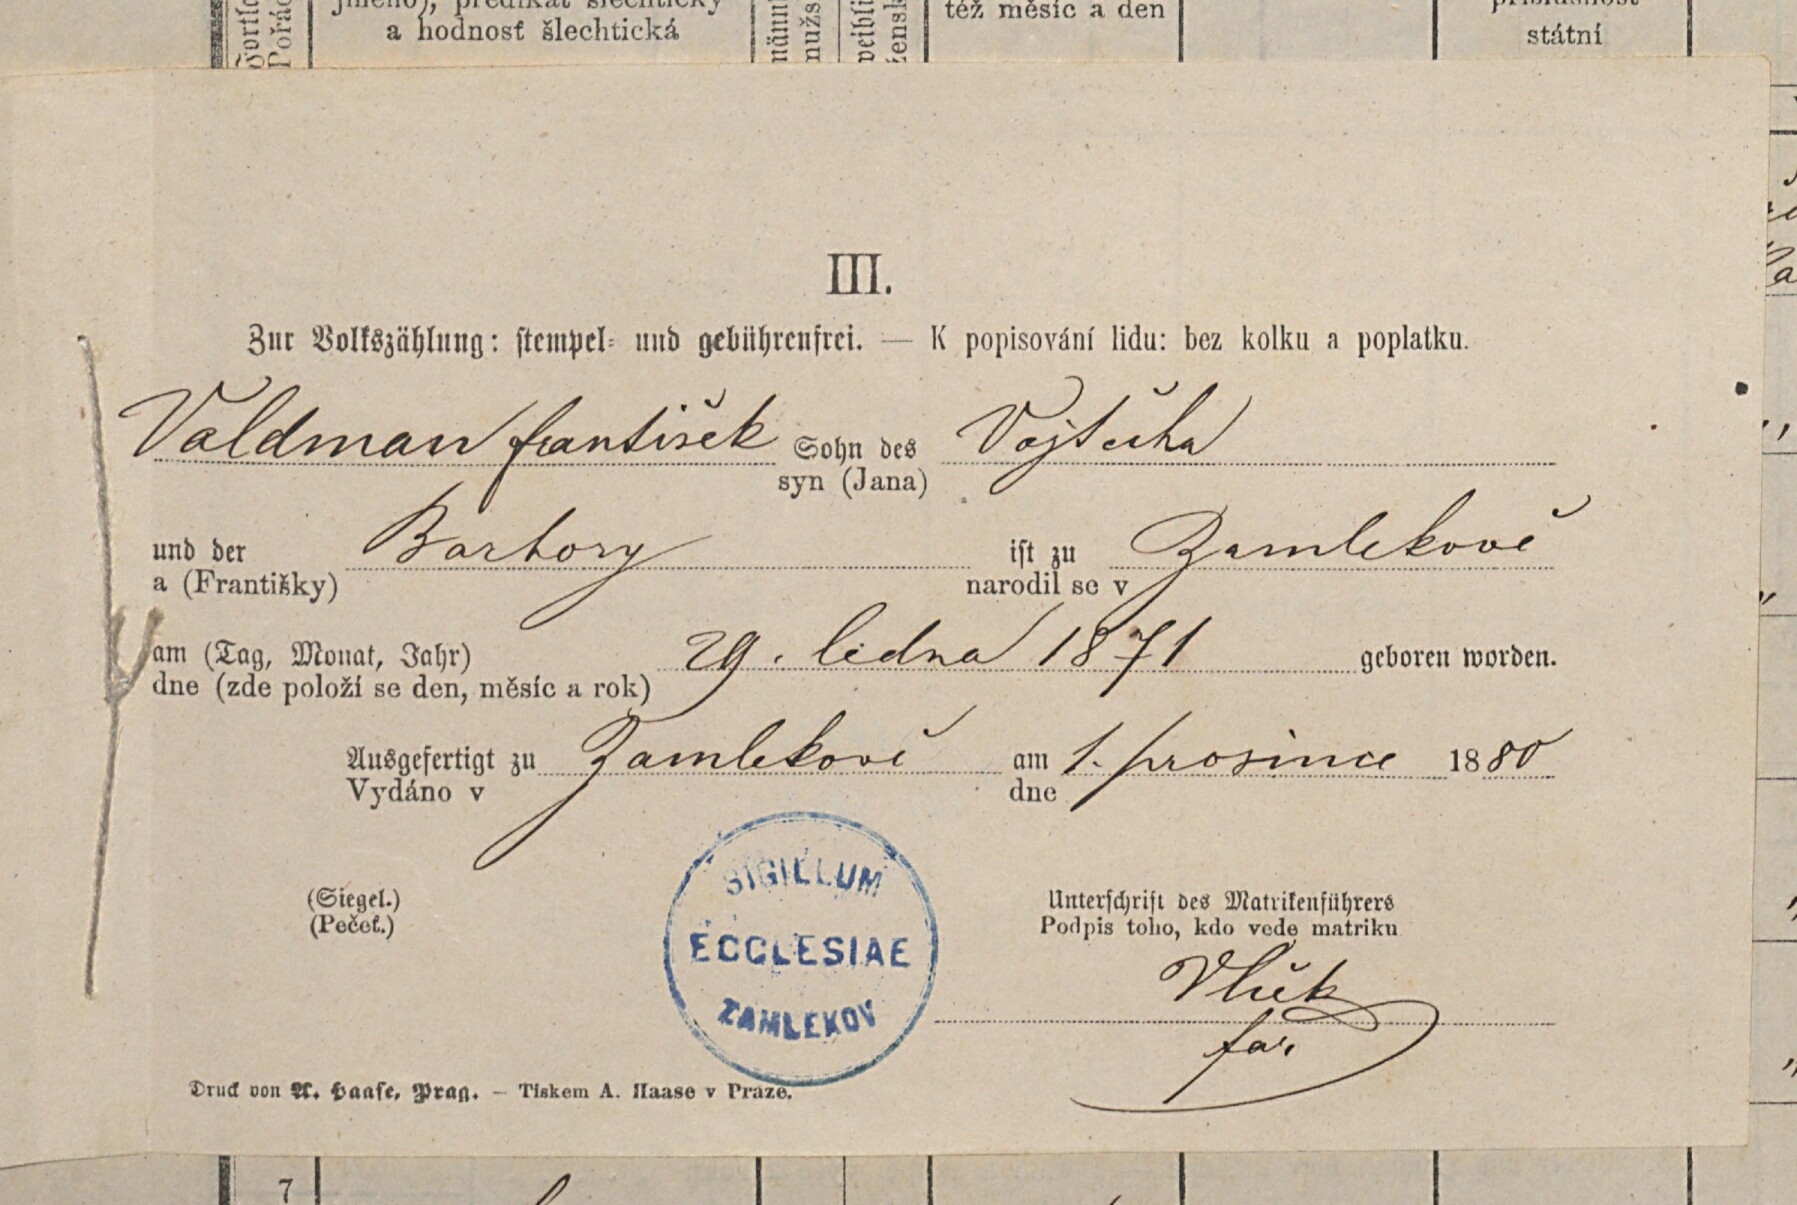 jméno), predikát šlechtický
a hodnosť šlechtická
též měsíc a den
příslušnost
státní
III.
Zur Volkszählung: stempel- und gebührenfrei. — K popisování lidu: bez kolku a poplatku.
Valdman František Sohn des Vojtěcha
syn (Jana)
und der Barbory ist zu Zamlekově
a (Františky) narodil se v
am (Tag, Monat, Jahr) 29. ledna 1871 geboren worden.
dne (zde položí se den, měsíc a rok)
Ausgefertigt zu Zamlekově am 1. prosince 1880
Vydáno v dne
SIGILLUM
ECCLESIAE
ZAMLEKOV
(Siegel.)
(Pečeť.)
Unterschrift des Matrikenführers
Podpis toho, kdo vede matriku
Vlček
far.
Druck von A. Haase, Prag. — Tiskem A. Haase v Praze.
7